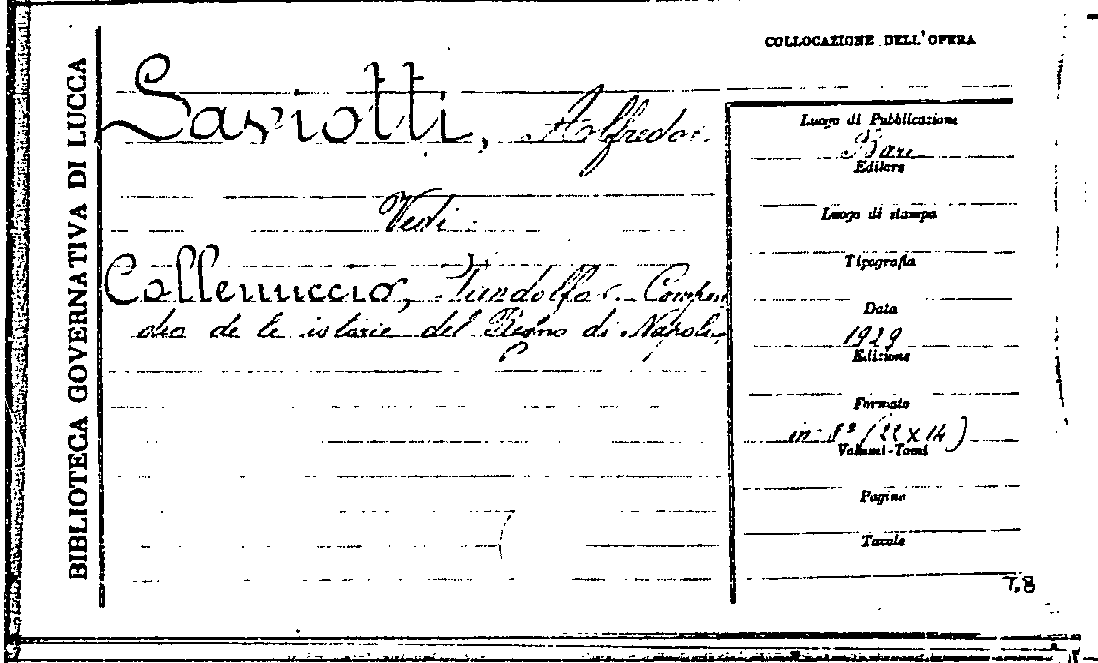 BIBLIOTECA GOVERNATIVA DI LUCCA
COLLOCAZIONE DELL'OPERA
Saviotti, Alfredo.
Vedi.
Collenuccio, Pandolfo. Compen
dio de le istorie del Regno di Napoli.
Luogo di Pubblicazione
Bari
Editore
Luogo di stampa
Tipografia
Data
1929
Edizione
Formato
in-8º (22 x 14)
Volumi-Tomi
Pagine
Tavole
T.8